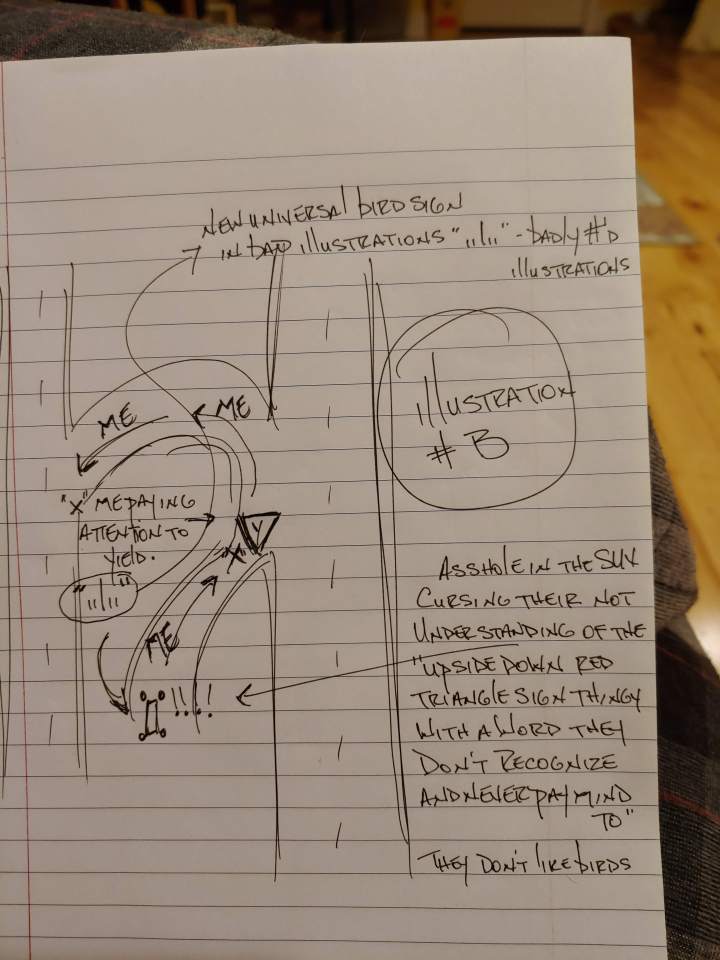 NEW UNIVERSAL BIRD SIGN
IN BAD ILLUSTRATIONS ",,|,," - BADLY #'D
ILLUSTRATIONS
ILLUSTRATION
# B
ME
ME
"X" ME PAYING
ATTENTION TO
YIELD.
"X"
Y
",,|,,"
ME
!!!!
ASSHOLE IN THE SUV
CURSING THEIR NOT
UNDERSTANDING OF THE
"UPSIDE DOWN RED
TRIANGLE SIGN THINGY
WITH A WORD THEY
DON'T RECOGNIZE
AND NEVER PAY MIND
TO"
THEY DON'T LIKE BIRDS